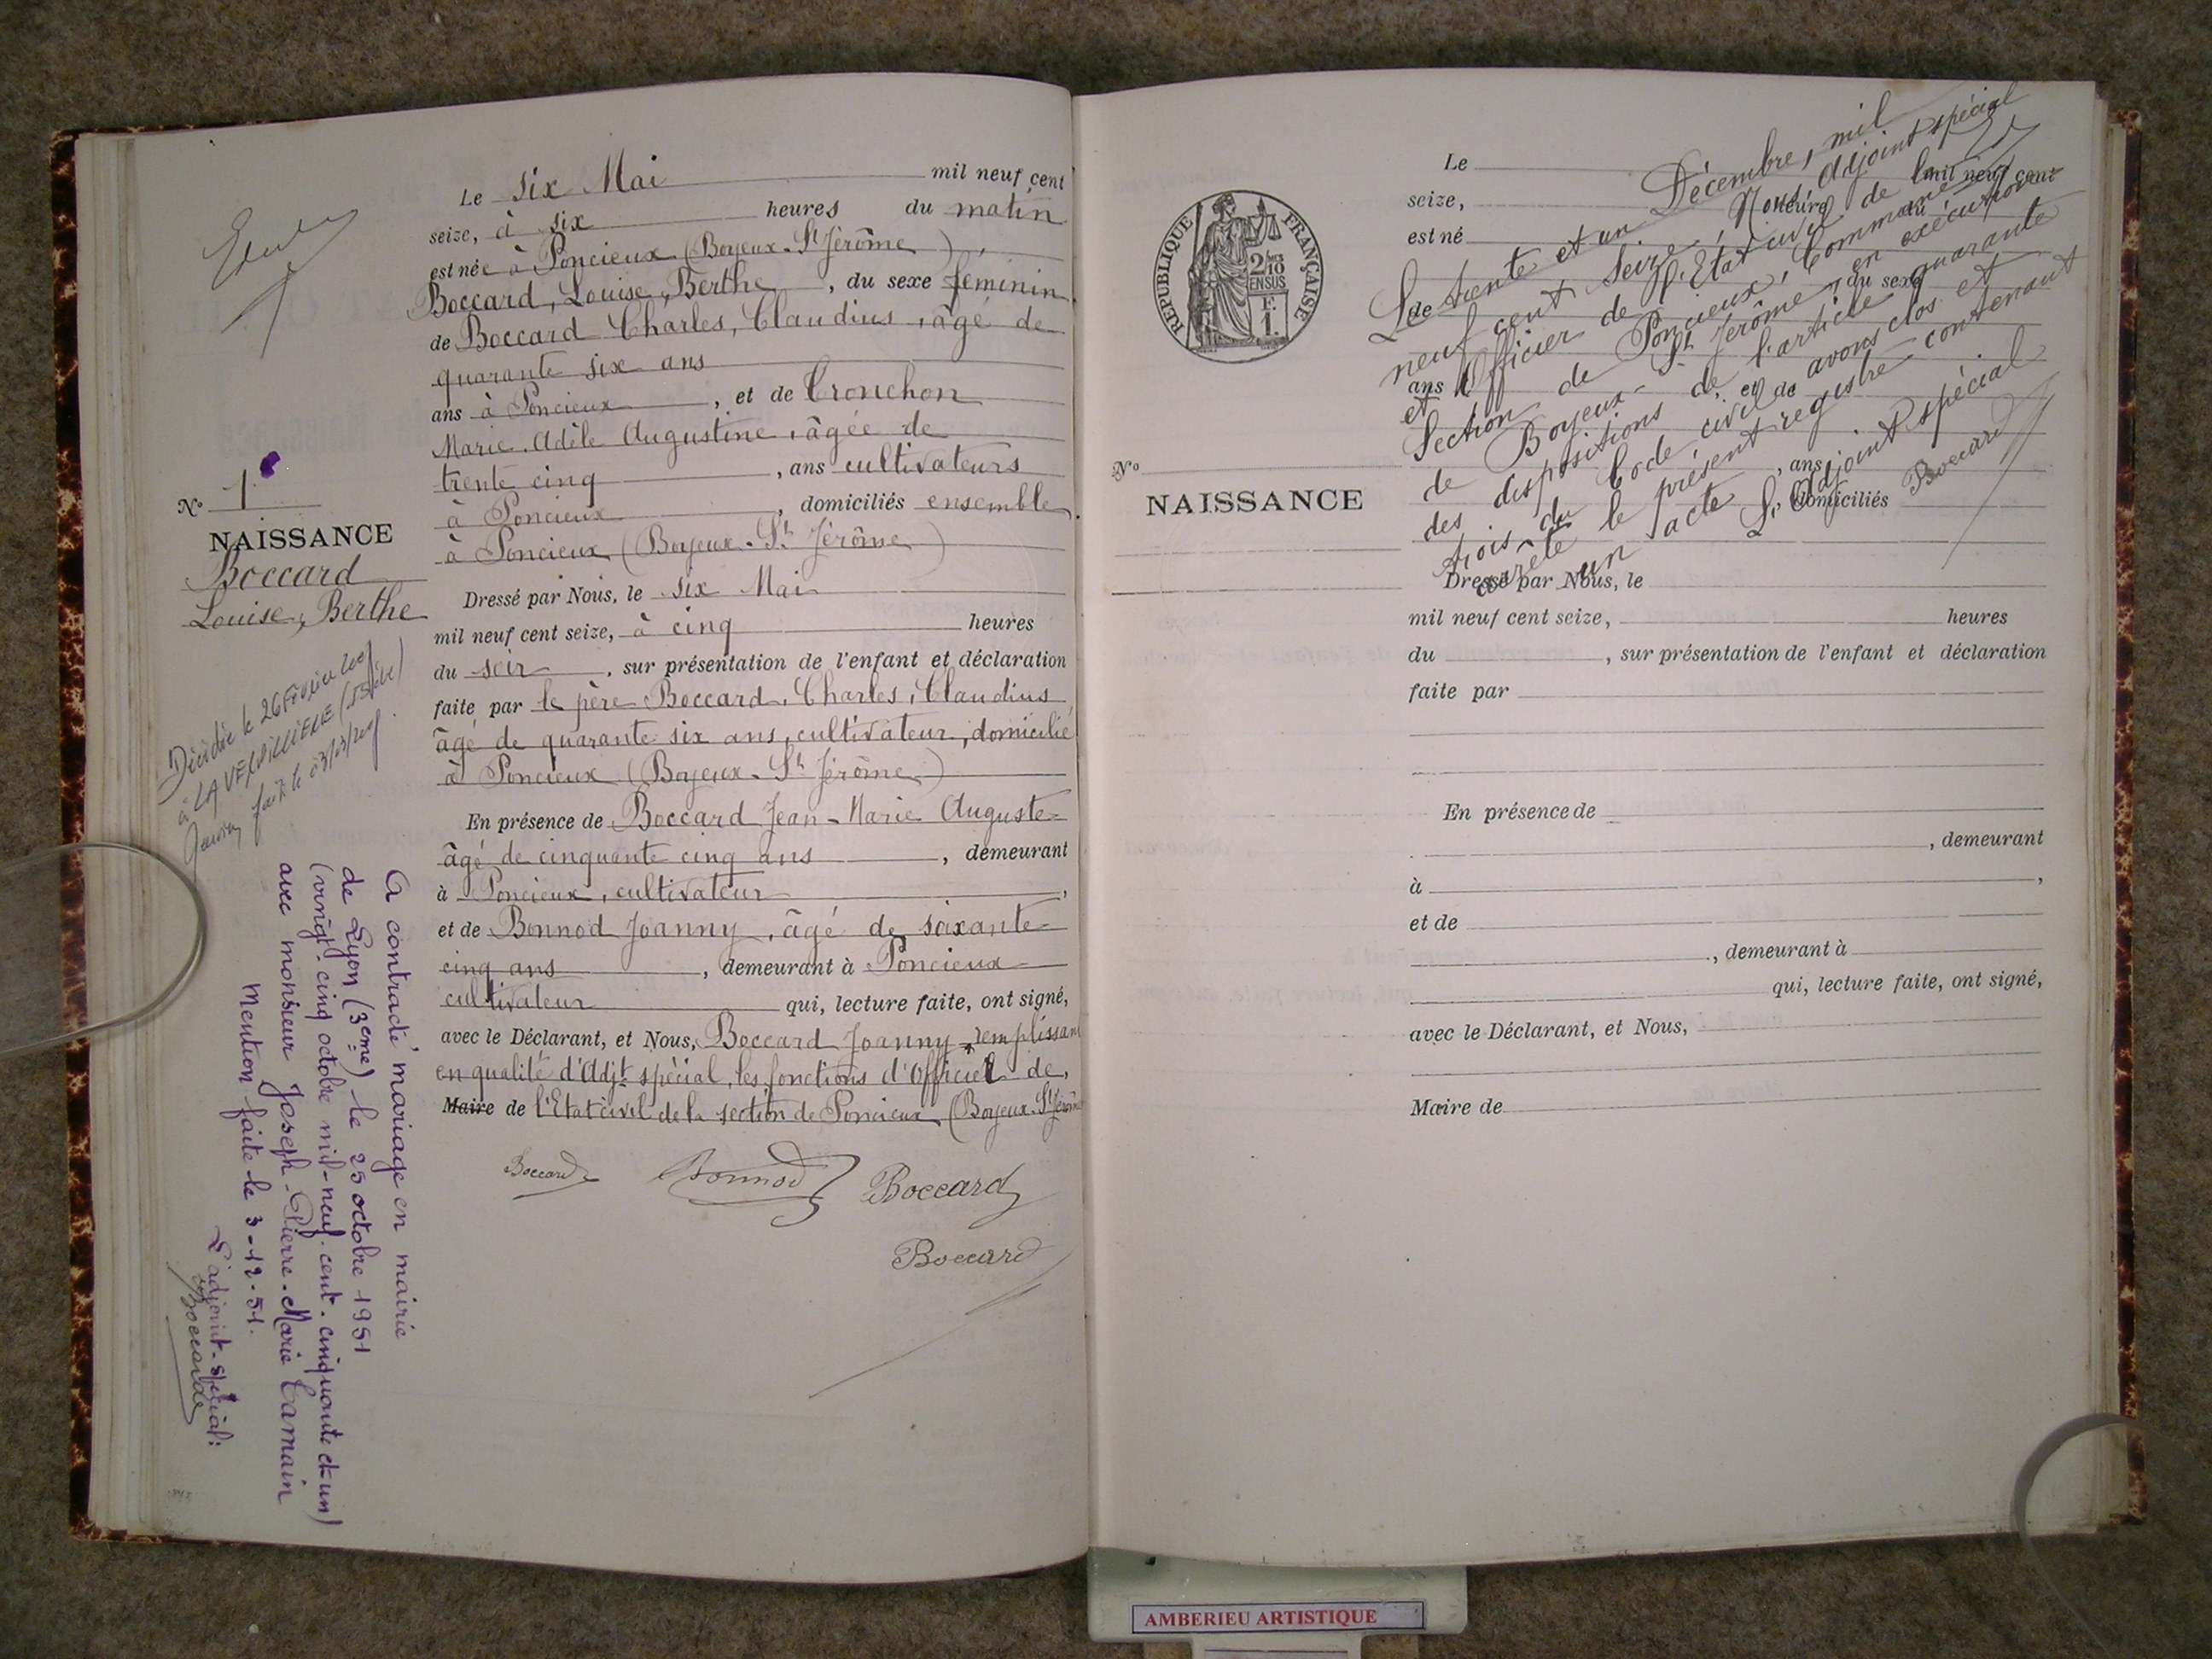 Le six Mai mil neuf cent
seize, à six heures du matin
est née à Poncieux (Boyeux-St Jérôme),
Boccard, Louise, Berthe, du sexe féminin
de Boccard Charles, Claudius, âgé de
quarante six ans
ans à Poncieux, et de Cronchon
Marie Adèle Augustine, âgée de
trente cinq, ans cultivateurs
à Poncieux, domiciliés ensemble
à Poncieux (Boyeux-St Jérôme)
Dressé par Nous, le six Mai
mil neuf cent seize, à cinq heures
du soir, sur présentation de l'enfant et déclaration
faite par le père Boccard, Charles, Claudius
âgé de quarante six ans, cultivateur, domicilié
à Poncieux (Boyeux-St Jérôme)
En présence de Boccard Jean-Marie Auguste
âgé de cinquante cinq ans, demeurant
à Poncieux, cultivateur,
et de Bonnod Joanny, âgé de soixante-
cinq ans, demeurant à Poncieux
cultivateur qui, lecture faite, ont signé,
avec le Déclarant, et Nous, Boccard Joanny remplissant
en qualité d'Adjt spécial, les fonctions d'Officiel de
Maire de l'Etat civil de la section de Poncieux (Boyeux-St Jérôme
Boccard Bonnod Boccard
Boccard
N° 1
NAISSANCE
Boccard
Louise, Berthe
Décédée le 26 Février
à LA VERPILLIERE (Isère)
fait le
A contracté mariage en mairie
de Lyon (3eme) le 25 octobre 1951
(vingt-cinq octobre mil-neuf-cent-cinquante et un)
avec monsieur Joseph-Pierre-Marie Camain
Mention faite le 3-12-51.
L'adjoint-spécial:
Boccard
REPUBLIQUE FRANÇAISE
2/10
EN SUS
F.
1.
N°
NAISSANCE
Le mil neuf cent
seize, heures du
est né
de , du sexe
ans , et de
, ans
domiciliés
Le trente et un Décembre, mil
neuf cent seize, Nous Adjoint spécial
et Officier de l'Etat civil de la
Section de Poncieux, Commune
de Boyeux-St Jérôme, en exécution
des dispositions de l'article quarante
trois du Code civil avons clos et
arrêté le présent registre contenant
un acte
L'Adjoint spécial
Boccard
Dressé par Nous, le
mil neuf cent seize, heures
du , sur présentation de l'enfant et déclaration
faite par
En présence de
, demeurant
à ,
et de
, demeurant à
qui, lecture faite, ont signé,
avec le Déclarant, et Nous,
Maire de
AMBERIEU ARTISTIQUE